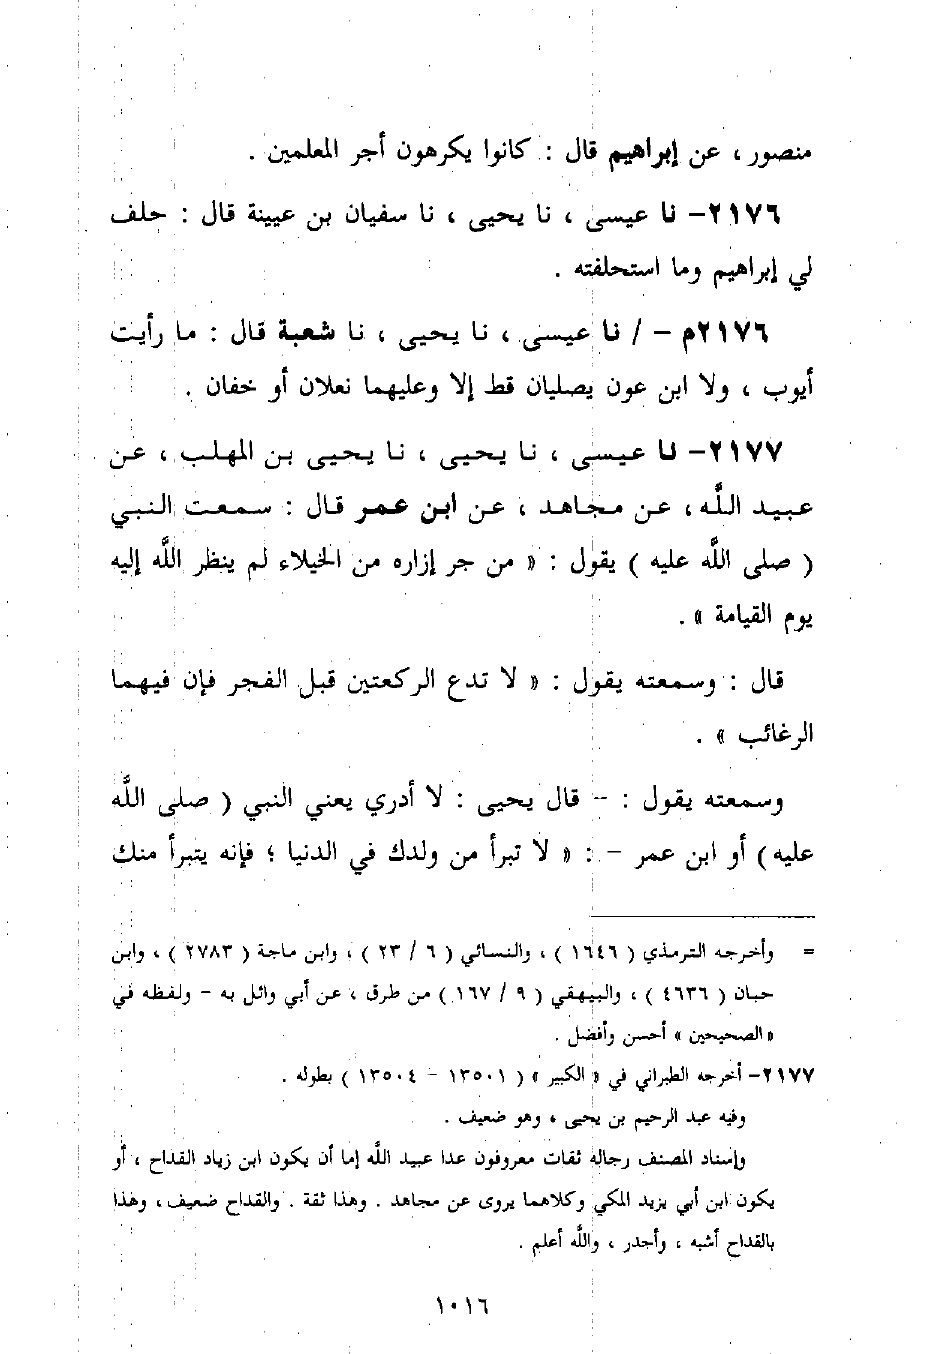 منصور ، عن إبراهيم قال : كانوا يكرهون أجر المعلمين .
٢١٧٦- نا عيسى ، نا يحيى ، نا سفيان بن عيينة قال : حلف
لي إبراهيم وما استحلفته .
٢١٧٦م - / نا عيسى ، نا يحيى ، نا شعبة قال : ما رأيت
أيوب ، ولا ابن عون يصليان قط إلا وعليهما نعلان أو خفان .
٢١٧٧- نا عيسى ، نا يحيى ، نا يحيى بن المهلب ، عن
عبيد اللَّه ، عن مجاهد ، عن ابن عمر قال : سمعت النبي
( صلى اللَّه عليه ) يقول : « من جر إزاره من الخيلاء لم ينظر اللَّه إليه
يوم القيامة » .
قال : وسمعته يقول : « لا تدع الركعتين قبل الفجر فإن فيهما
الرغائب » .
وسمعته يقول : - قال يحيى : لا أدري يعني النبي ( صلى اللَّه
عليه ) أو ابن عمر - : « لا تبرأ من ولدك في الدنيا ؛ فإنه يتبرأ منك
= وأخرجه الترمذي ( ١٦٤٦ ) ، والنسائي ( ٦ / ٢٣ ) ، وابن ماجة ( ٢٧٨٣ ) ، وابن
حبان ( ٤٦٣٦ ) ، والبيهقي ( ٩ / ١٦٧ ) من طرق ، عن أبي وائل به - ولفظه في
« الصحيحين » أحسن وأفضل .
٢١٧٧- أخرجه الطبراني في « الكبير » ( ١٣٥٠١ - ١٣٥٠٤ ) بطوله .
وفيه عبد الرحيم بن يحيى ، وهو ضعيف .
وإسناد المصنف رجاله ثقات معروفون عدا عبيد اللَّه إما أن يكون ابن زياد القداح ، أو
يكون ابن أبي يزيد المكي وكلاهما يروى عن مجاهد . وهذا ثقة . والقداح ضعيف ، وهذا
بالقداح أشبه ، وأجدر ، واللَّه أعلم .
١٠١٦